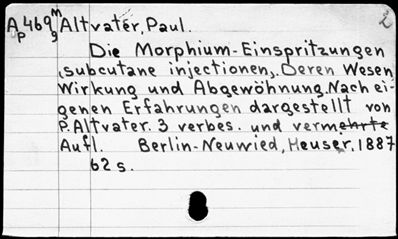 Ap469m9 Altvater, Paul. 2
Die Morphium-Einspritzungen
(subcutane injectionen). Deren Wesen,
Wirkung und Abgewöhnung. Nach ei-
genen Erfahrungen dargestellt von
P. Altvater. 3 verbes. und vermehrte
Aufl. Berlin-Neuwied, Heuser, 1887
62 s.